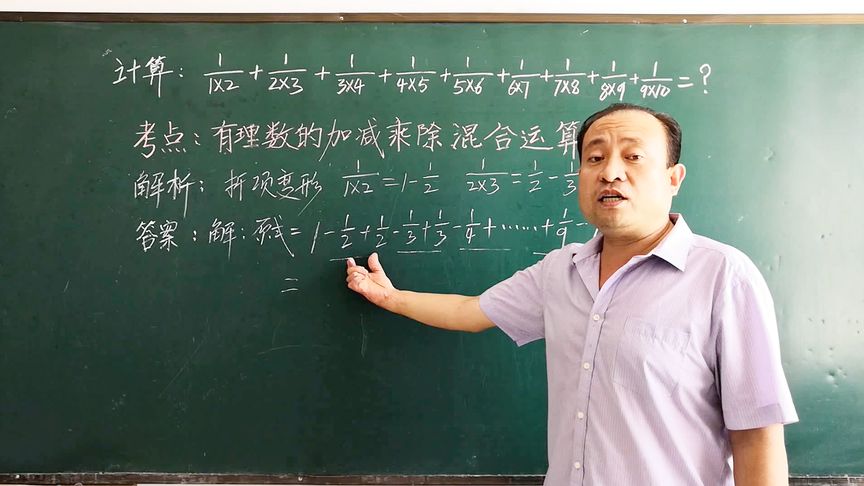 计算: 1/1×2 + 1/2×3 + 1/3×4 + 1/4×5 + 1/5×6 + 1/6×7 + 1/7×8 + 1/8×9 + 1/9×10 = ?
考点: 有理数的加减乘除混合运算
解析: 折项变形 1/1×2 = 1 - 1/2 1/2×3 = 1/2 - 1/3
答案: 解: 原式 = 1 - 1/2 + 1/2 - 1/3 + 1/3 - 1/4 + …… + 1/9 -
=